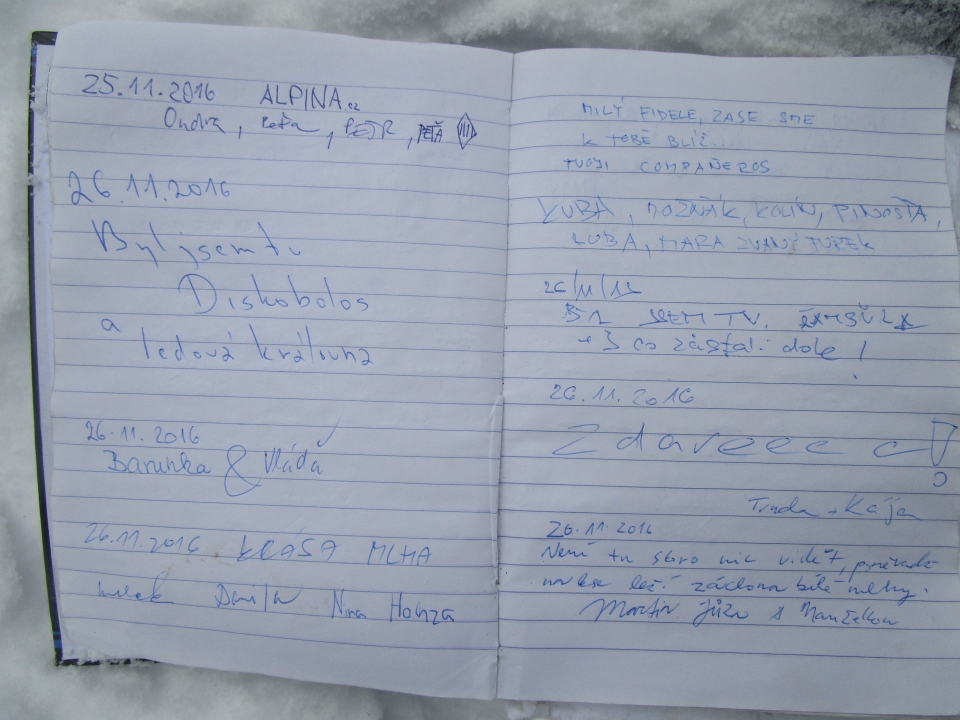 25.11.2016 ALPINA.cz
Ondra, Peťa, PETR, PEŤA
26.11.2016
Byl jsem tu
Diskobolos
a
ledová královna
26.11.2016
Barunka & Vláďa
26.11.2016 KRÁSA MLHA
Danila Nina Honza
MILÝ FIDELE, ZASE SME
K TOBĚ BLÍŽ...
TVOJI COMPAÑEROS
KUBA, MOZŇÁK, KOLÍN, PINOSŤA,
LUBA, MARA ZVANÝ TUREK
26/11/16
SEM TU.
+ 3 co zůstali dole!
26.11.2016
Zdaveee c!
+ Kája
26.11.2016
Není tu skoro nic vidět, poněvadž
na lese leží záclona bílé mlhy.
Martin Jůza s Manželkou